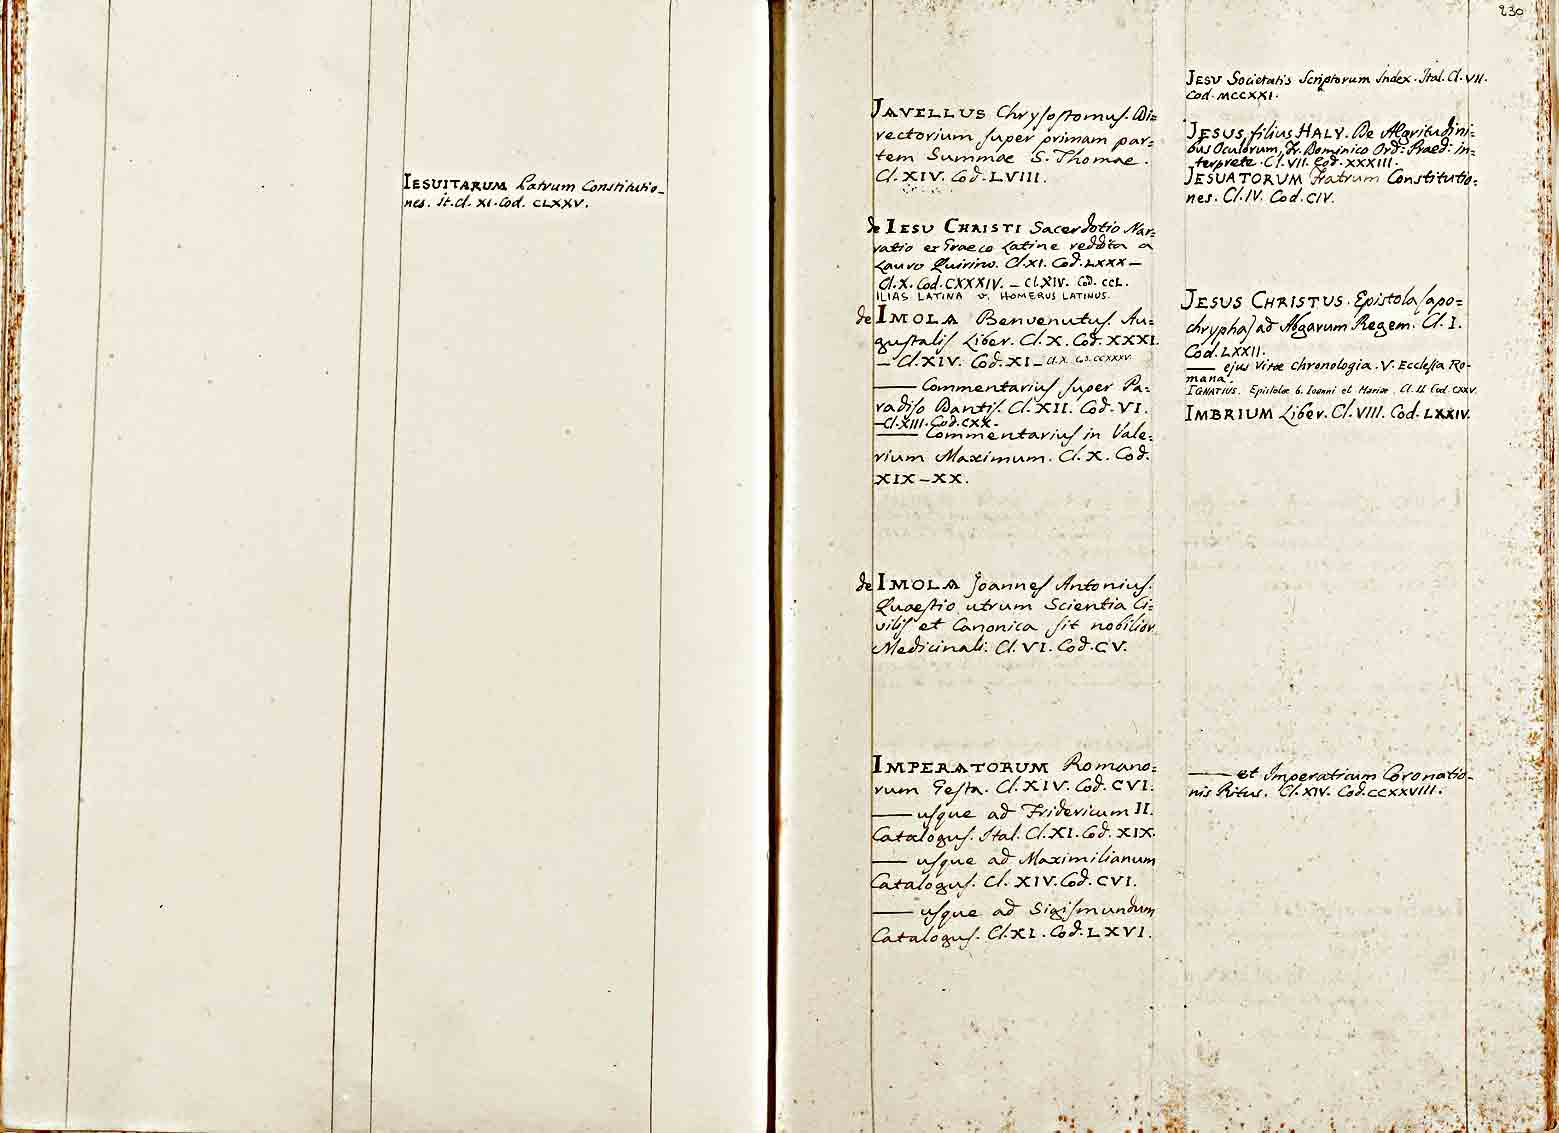 IESUITARUM Patrum Constitutio-
nes. It. Cl. XI. Cod. CLXXV.
230
JAVELLUS Chrysostomus. Di=
rectorium super primam par=
tem Summae S. Thomae.
Cl. XIV. Cod. LVIII.
de IESU CHRISTI Sacerdotio Nar=
ratio ex Graeco Latine reddita a
Lauro Quirino. Cl. XI. Cod. LXXX —
Cl. X. Cod. CXXXIV. — Cl. XIV. Cod. CCL.
ILIAS LATINA v. HOMERUS LATINUS.
de IMOLA Benvenutus. Au=
gustalis Liber. Cl. X. Cod. XXXI.
— Cl. XIV. Cod. XI — Cl. X. Cod. CCXXXV.
—— Commentarius super Pa=
radiso Dantis. Cl. XII. Cod. VI.
— Cl. XIII. Cod. CXX.
—— Commentarius in Vale=
rium Maximum. Cl. X. Cod.
XIX — XX.
de IMOLA Joannes Antonius.
Quaestio utrum Scientia Ci=
vilis et Canonica sit nobilior
Medicinali. Cl. VI. Cod. CV.
IMPERATORUM Romano=
rum Gesta. Cl. XIV. Cod. CVI.
—— usque ad Fridericum II.
Catalogus. Ital. Cl. XI. Cod. XIX.
—— usque ad Maximilianum
Catalogus. Cl. XIV. Cod. CVI.
—— usque ad Sigismundum
Catalogus. Cl. XI. Cod. LXVI.
JESU Societatis Scriptorum Index. Ital. Cl. VII.
Cod. MCCXXI.
JESUS, filius HALY. De Aegritudini=
bus Oculorum, Fr. Dominico Ord: Praed: in=
terprete. Cl. VII. Cod. XXXIII.
JESUATORUM Fratrum Constitutio=
nes. Cl. IV. Cod. CIV.
JESUS CHRISTUS. Epistola (apo=
chrypha) ad Abgarum Regem. Cl. I.
Cod. LXXII.
—— ejus Vitae chronologia. V. Ecclesia Ro-
mana.
IGNATIUS. Epistolae b. Ioanni et Mariae. Cl. II Cod. CXXV.
IMBRIUM Liber. Cl. VIII. Cod. LXXIV.
—— et Imperaticum Coronatio-
nis Ritus. Cl. XIV. Cod. CCXXVIII.